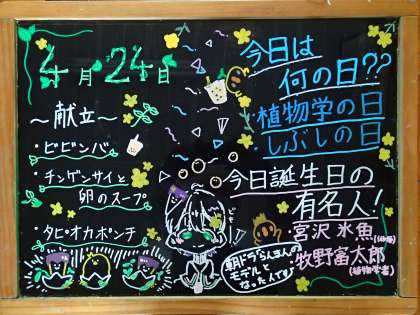 4月24日
～献立～
・ビビンバ
・チンゲンサイと
卵のスープ
・タピオカポンチ
今日は
何の日??
・植物学の日
・しぶしの日
今日誕生日の
有名人!
・宮沢 氷魚
・牧野富太郎
(植物学者)
朝ドラらんまんの
モデルと
なった人です